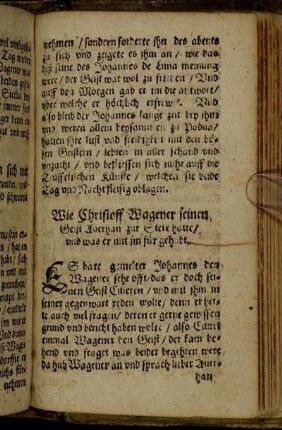 nehmen / sondern forderte ihn des abents
zu sich und zeigete es ihm an / wie das
diß seine des Johannes de Luna meinung
were / der Geist wat wol zu frieden / Und
auff den Morgen gab er im die antwort /
über welche er höchlich erfrewt. Und
also bleib der Johannes lange zeit bey ihm
und weren allein beysammen zu Padua /
hatten ihre lust und mit den bö-
sen Geistern / lebten in aller schand und
unzucht / und beflissen sich nuhr auff die
Teuffelischen Künste / welchen sie beide
Tag und Nacht fleisig oblagen.
Wie Christoff Wagener seinen
Geist Auerhan zur Stete hatte /
und was er mit im für gehabt.
ES bate gemelter Johannes den
Wagener sehr offt / das er doch sei-
nen Geist Citieren / und mit ihm in
seiner gegenwart reden wolte / denn er het-
te auch viel fragen / deren er gerne gewissen
grund und bericht haben wolte / also Citiret
einmal Wagener den Geist / der kam be-
hend und fraget was beider begehren were,
da hub Wagener an und sprach lieber Auer-
han